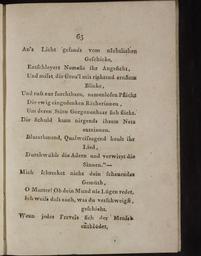 63
An's Licht gesandt vom nächtlichen
Geschicke,
Entschleyert Nemesis ihr Angesicht,
Und misst die Greu'l mit richtend ernstem
Blicke,
Und ruft zur furchtbarn, namenlosen Pflicht
Die ewig eingedenken Rächerinnen,
Um deren Stirn Gorgonenhaar sich flicht.
Die Schuld kann nirgends ihrem Netz
entrinnen.
Blutathmend, Qualweissagend heult ihr
Lied,
Durchwühlt die Adern und verwirrt die
Sinnen."—
Mich schrecket nicht dein schauerndes
Gemüth,
O Mutter! Ob dein Mund nie Lügen redet,
Ich weiss dass auch, was du verschweigst,
geschieht.
Wenn jedes Frevels sich der Mensch
entblödet,